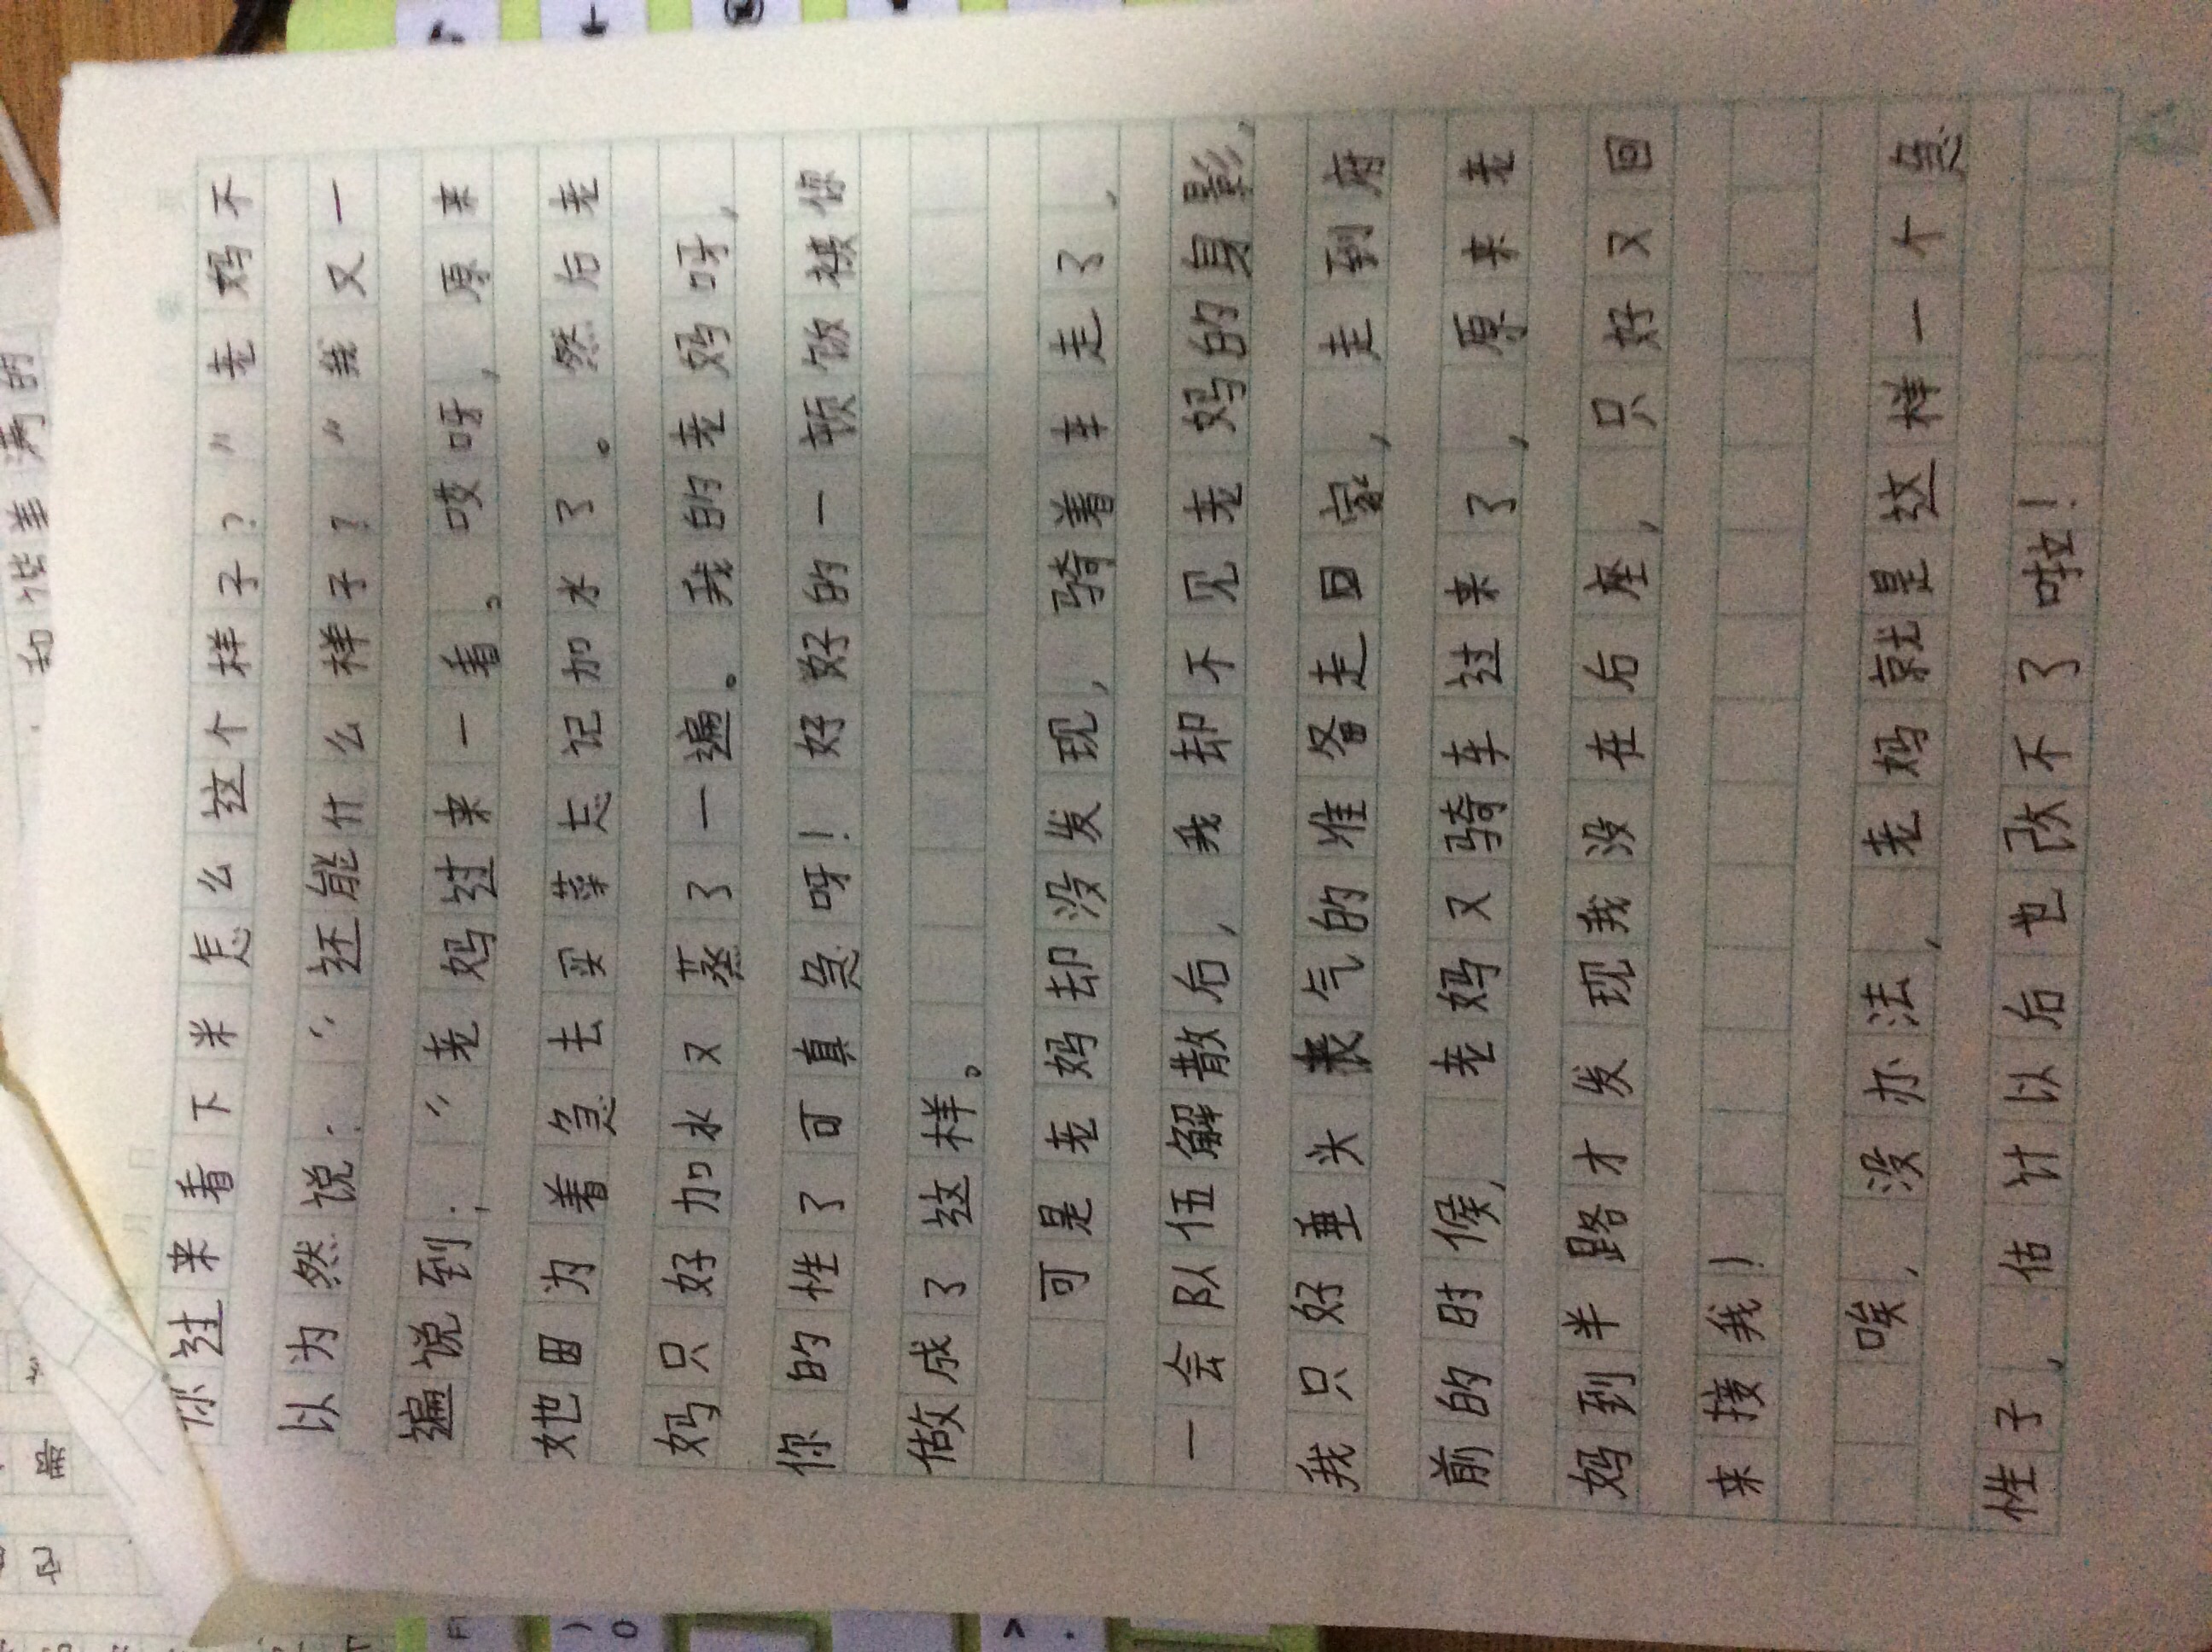 你过来看下米怎么这个样子?”老妈不
以为然说:“还能什么样子?”我又一
遍说到:“老妈过来一看。哎呀,原来
她因为着急去买菜忘记加水了。然后老
妈只好加水又蒸了一遍。我的老妈呀,
你的性了可真急呀!好好的一顿饭被你
做成了这样。
可是老妈却没发现,骑着车走了,
一会队伍解散后,我却不见老妈的身影,
我只好垂头丧气的准备走回家,走到府
前的时候,老妈又骑车过来了,原来老
妈到半路才发现我没在后座,只好又回
来接我!
唉,没办法,老妈就是这样一个急
性子,估计以后也改不了啦!